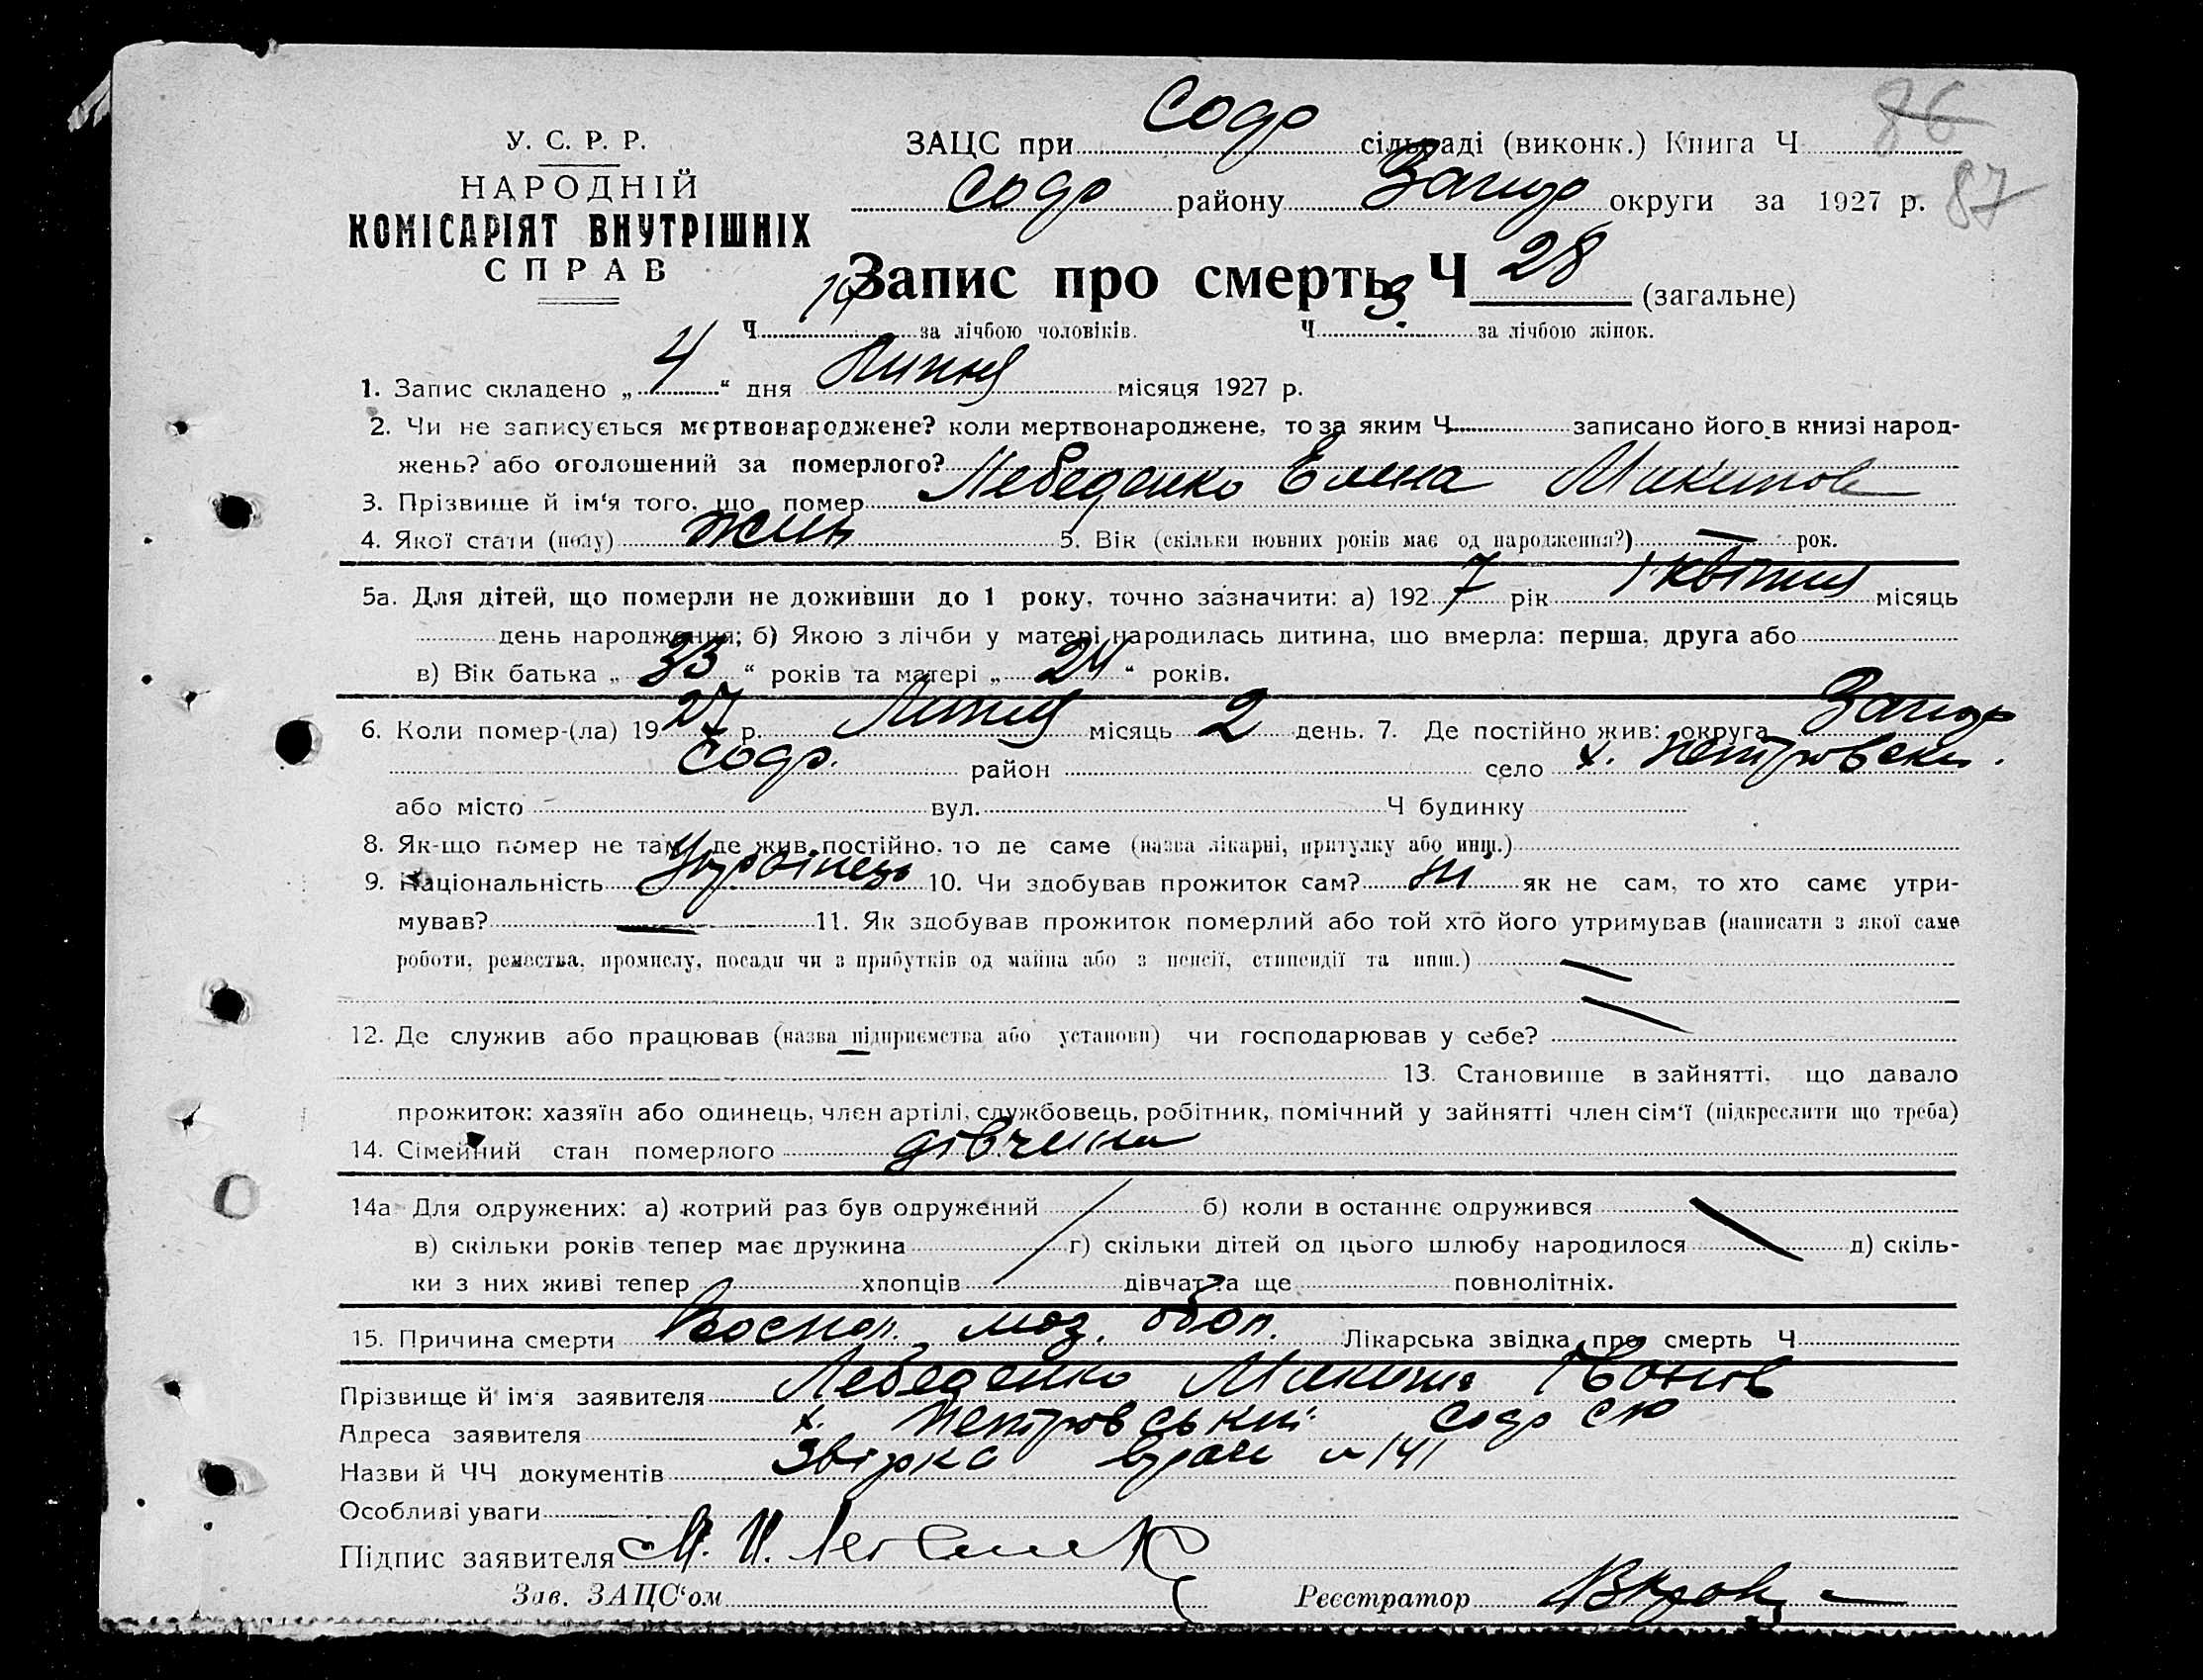 86
87
У. С. Р. Р.
НАРОДНІЙ
КОМІСАРІЯТ ВНУТРІШНІХ
СПРАВ
ЗАЦС при Софр сільраді (виконк.) Книга Ч
Софр району Запор округи за 1927 р.
Запис про смерть Ч 28 (загальне)
Ч за лічбою чоловіків. Ч 3 за лічбою жінок.
1. Запис складено „ 4 “ дня Липня місяця 1927 р.
2. Чи не записується мертвонароджене? коли мертвонароджене, то за яким Ч записано його в книзі народ-
жень? або оголошений за померлого?
3. Прізвище й ім‘я того, що помер Лебеденко Елена Микитов
4. Якої стати (полу) жін 5. Вік (скільки повних років має од народження?) — рок.
5а. Для дітей, що померли не доживши до 1 року, точно зазначити: а) 1927 рік 1 квітня місяць
день народження; б) Якою з лічби у матері народилась дитина, що вмерла: перша, друга або
в) Вік батька „ 33 “ років та матері „ 24 “ років.
6. Коли помер-(ла) 1927 р. Липня місяць 2 день. 7. Де постійно жив: округа Запор
Софр. район село х. Петровськ.
або місто вул. Ч будинку
8. Як-що помер не там, де жив постійно, то де саме (назва лікарні, притулку або инш.)
9. Національність Українець 10. Чи здобував прожиток сам? ні як не сам, то хто саме утри-
мував? — 11. Як здобував прожиток померлий або той хто його утримував (написати з якої саме
роботи, ремества, промислу, посади чи з прибутків од майна або з пенсії, стипендії та инш.)
12. Де служив або працював (назва підприємства або установи) чи господарював у себе?
13. Становище в зайнятті, що давало
прожиток: хазяїн або одинець, член артілі, службовець, робітник, помічний у зайнятті член сім‘ї (підкреслити що треба)
14. Сімейний стан померлого дівчина
14а Для одружених: а) котрий раз був одружений б) коли в останнє одружився
в) скільки років тепер має дружина г) скільки дітей од цього шлюбу народилося д) скіль-
ки з них живі тепер хлопців дівчат та ще повнолітніх.
15. Причина смерти Воспол. моз. обол. Лікарська звідка про смерть Ч
Прізвище й ім‘я заявителя Лебеденко Микита Іванов
Адреса заявителя х. Петровський Софр
Назви й ЧЧ документів врача 141
Особливі уваги
Підпис заявителя М. И.
Зав. ЗАЦС‘ом Реєстратор